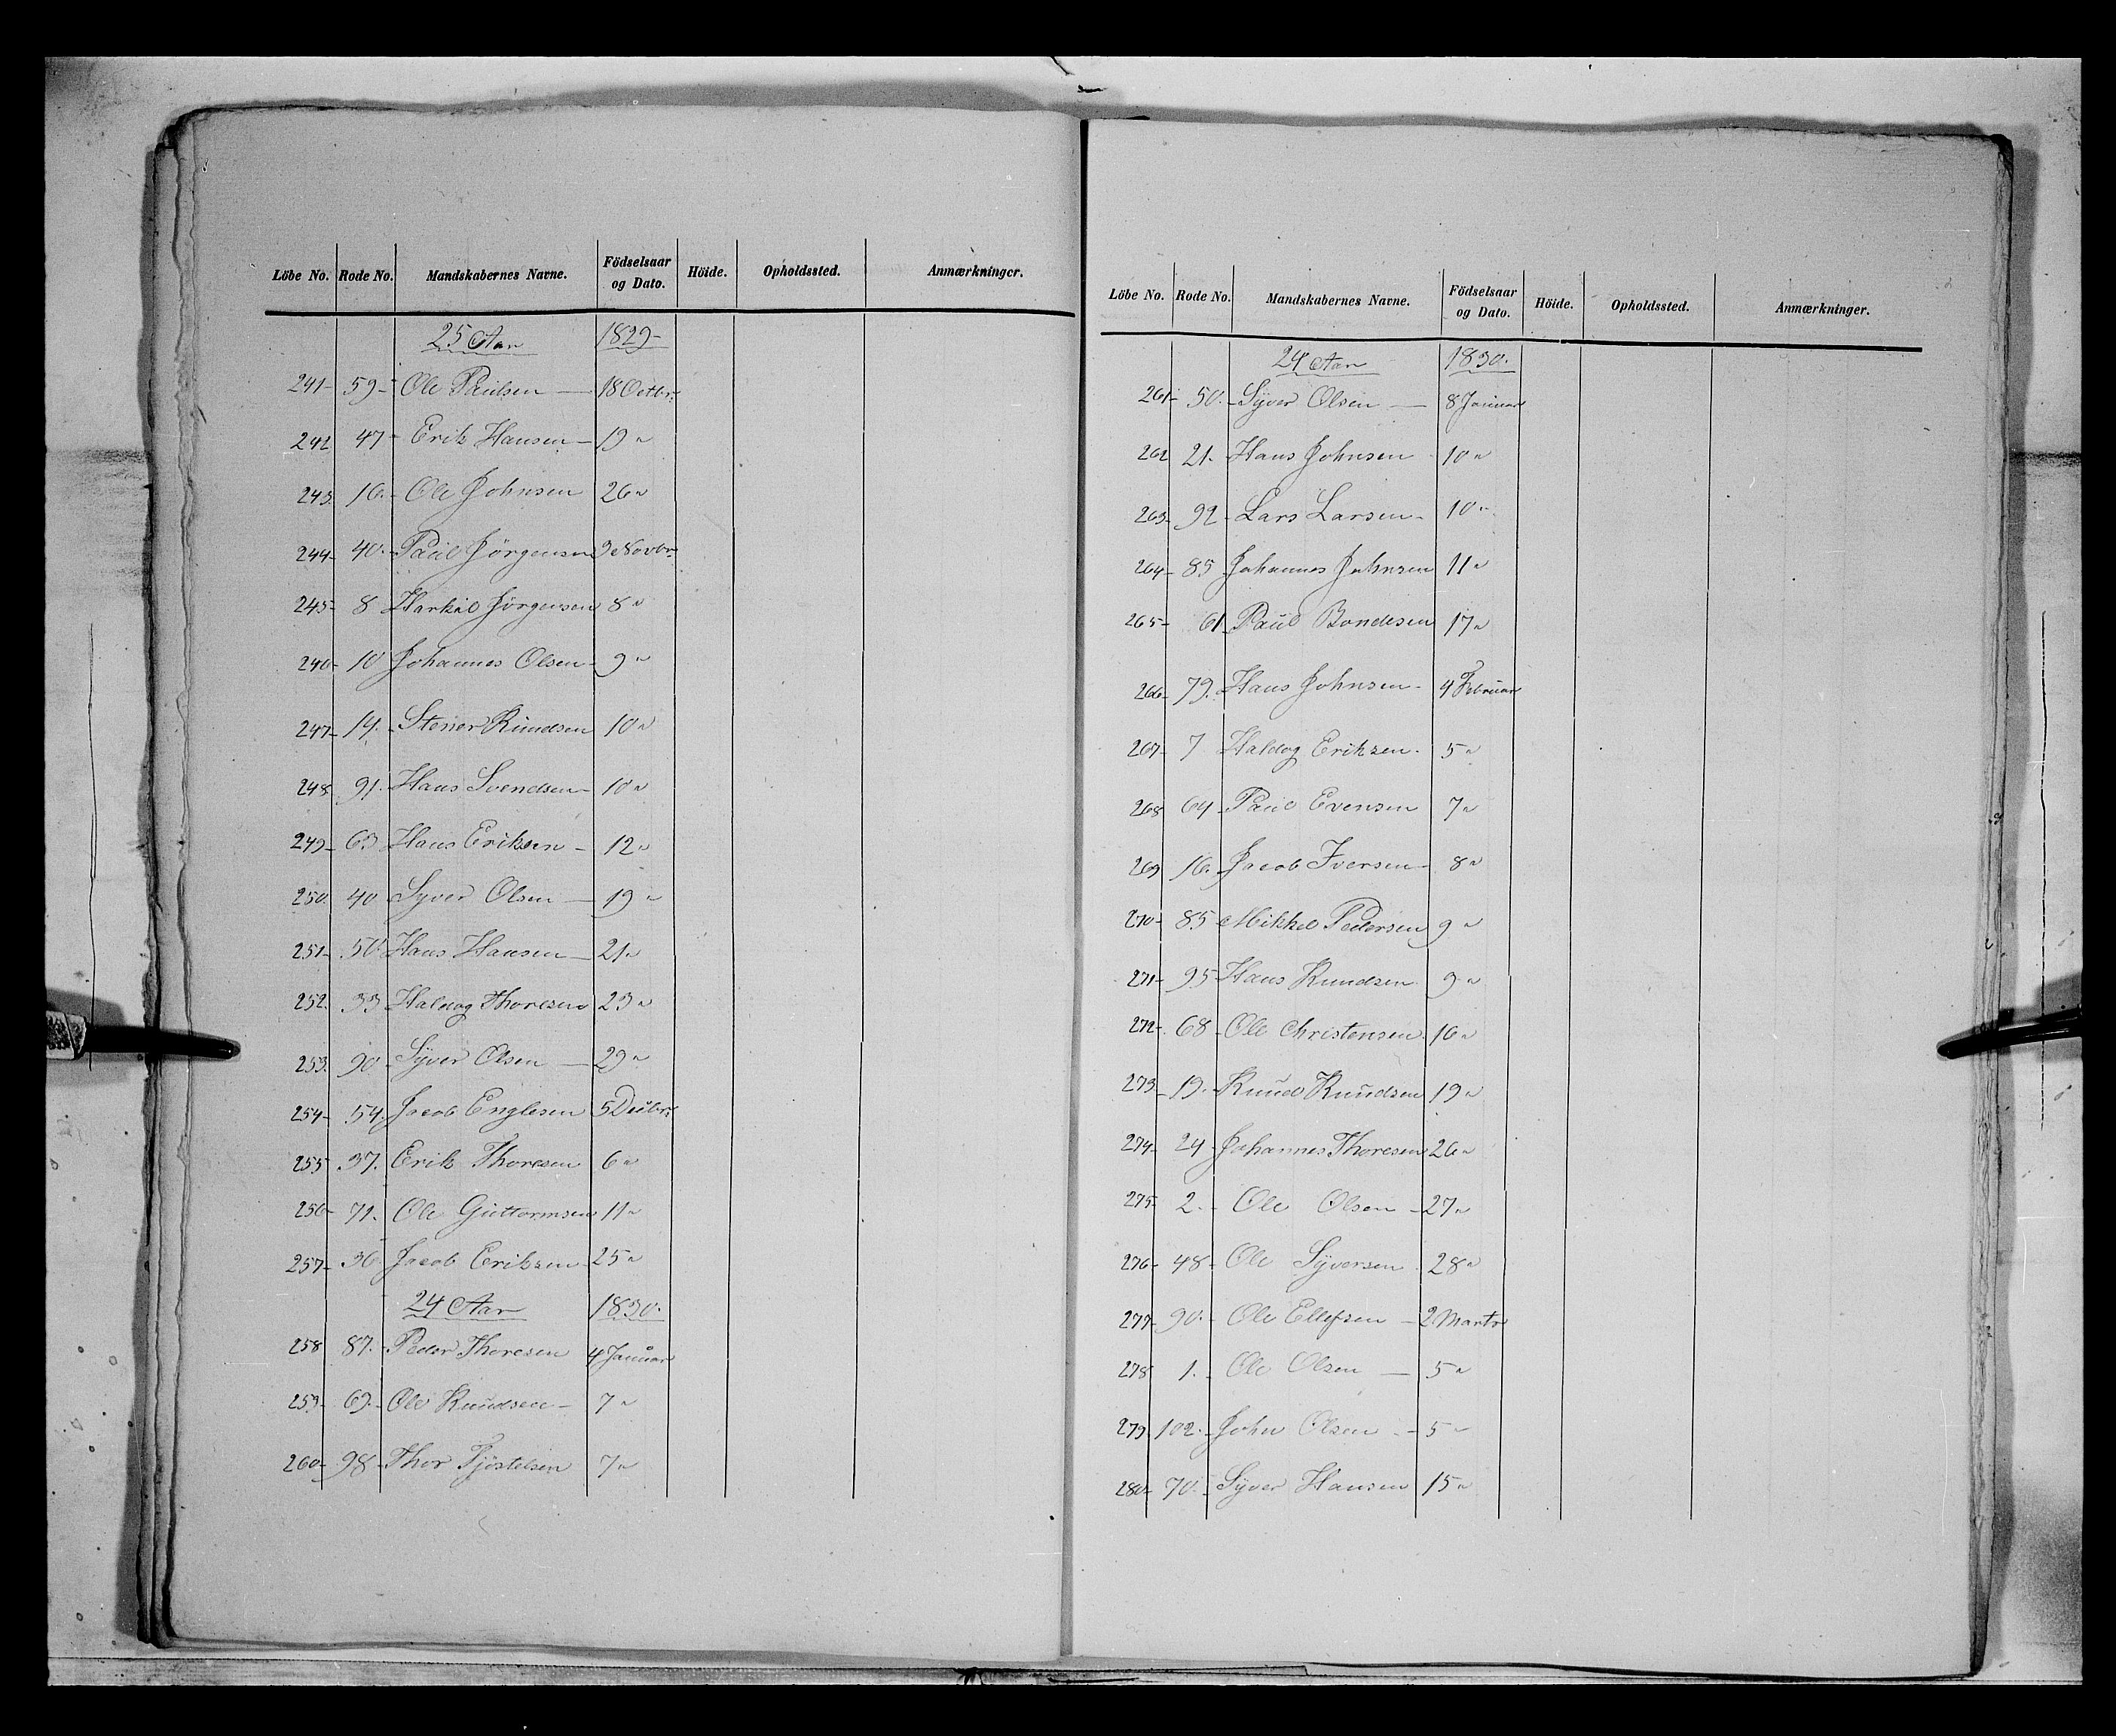 Löbe No. Rode No. Mandskabernes Navne. Födselsaar og Dato. Höide. Opholdssted. Anmærkninger.
25 Aar 1829-
241- 59- Ole Paulsen — 18 Octbr:
242 47- Erik Hansen - 19 "
243. 16.- Ole Johnsen 26 "
244- 40.- Paul Jörgensen 3 Novbr:
245- 8 Harkil Jörgensen 8 "
246- 10 Johannes Olsen - 9 "
247- 14. - Stener Knudsen 10 "
248. 91. - Hans Svendsen - 10 "
249- 63 Hans Eriksen - 12 "
250. 40 Syver Olsen — 19 "
251- 50. Hans Hansen — 21 "
252. 33 Haldog Thoresen 23 "
253. 90 - Syver Olsen — 29 "
254- 54. Jacob Englesen 5 Decbr:
255- 37. Erik Thoresen 6 "
256- 71. Ole Guttormsen 11 "
257- 36 Jacob Eriksen - 25 "
24 Aar 1830.
258 87. - Peder Thoresen 4 Januar
259- 69. - Ole Knudsen - 7 "
260- 98 - Thor Tjöstelsen 7 "
Löbe No. Rode No. Mandskabernes Navne. Födselsaar og Dato. Höide. Opholdssted. Anmærkninger.
24 Aar 1830.
261- 50. - Syver Olsen — 8 Januar
262 21. - Hans Johnsen 10 "
263- 92 - Lars Larsen - 10 "
264- 85 - Johannes Johnsen 11 "
265- 61 Paul Bondesen 17 "
266- 79. Hans Johnsen - 4 Februar
267- 7 Haldog Eriksen. 5 "
268 64 - Paul Evensen 7 "
269 16. - Jacob Iversen - 8 "
270- 85 - Mikkel Pedersen 9 "
271- 95 - Hans Knudsen 9 "
272- 68 - Ole Christensen 16 "
273- 19. - Knud Knudsen 19 "
274- 24 - Johannes Thoresen 26 "
275- 2. - Ole Olsen - 27 "
276- 48 - Ole Syversen 28 "
277- 90. - Ole Ellefsen - 2 Marts
278 1. - Ole Olsen — 5 "
279. 102. - John Olsen - 5 "
280- 70. - Syver Hansen 15 "